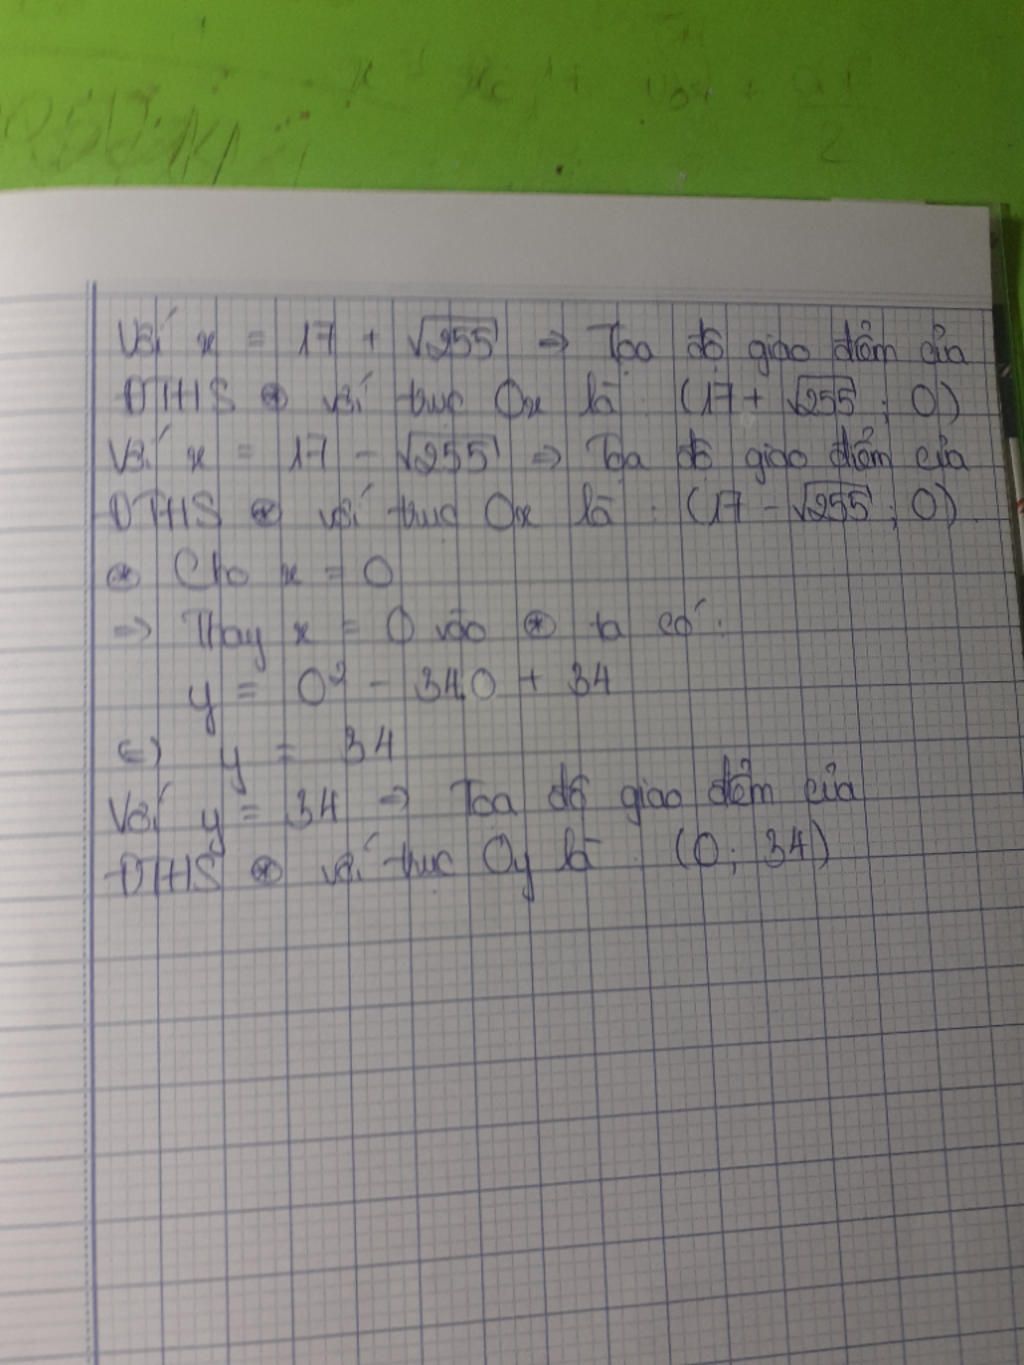 Với x = 17 + √255 => Tọa độ giao điểm của
ĐTHS ⊛ với trục Ox là : (17 + √255 ; 0)
Với x = 17 - √255 => Tọa độ giao điểm của
ĐTHS ⊛ với trục Ox là : (17 - √255 ; 0)
⊛ Cho x = 0
=> Thay x = 0 vào ⊛ ta có :
y = 0² - 34.0 + 34
<=> y = 34
Với y = 34 => Tọa độ giao điểm của
ĐTHS ⊛ với trục Oy là : (0 ; 34)